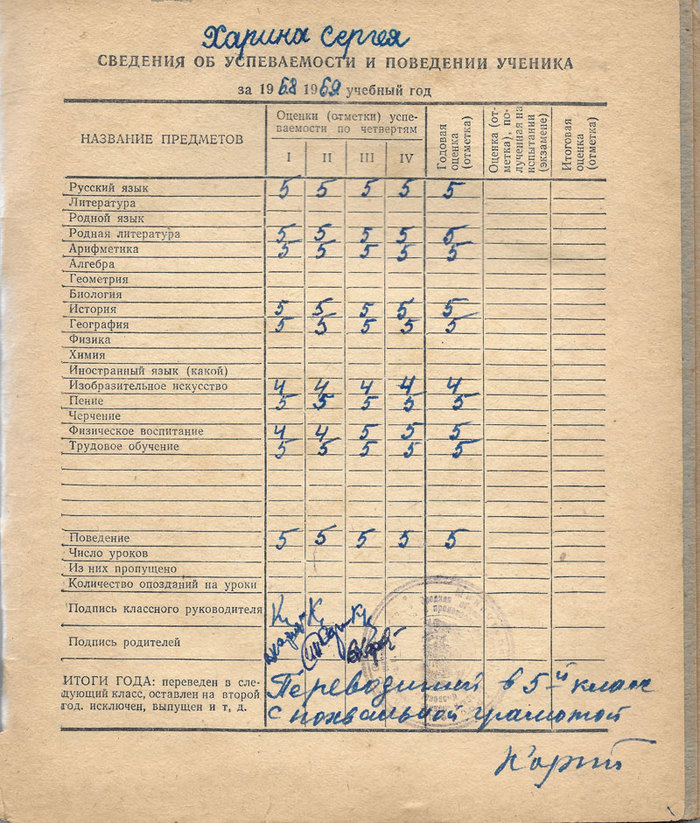 Харина Сергея
СВЕДЕНИЯ ОБ УСПЕВАЕМОСТИ И ПОВЕДЕНИИ УЧЕНИКА
за 1968 1969 учебный год
НАЗВАНИЕ ПРЕДМЕТОВ
Оценки (отметки) успе-
ваемости по четвертям
I II III IV
Годовая
оценка
(отметка)
Оценка (от-
метка), по-
лученная на
испытании
(экзамене)
Итоговая
оценка
(отметка)
Русский язык 5 5 5 5 5
Литература
Родной язык
Родная литература 5 5 5 5 5
Арифметика 5 5 5 5 5
Алгебра
Геометрия
Биология
История 5 5 5 5 5
География 5 5 5 5 5
Физика
Химия
Иностранный язык (какой)
Изобразительное искусство 4 4 4 4 4
Пение 5 5 5 5 5
Черчение
Физическое воспитание 4 4 5 5 5
Трудовое обучение 5 5 5 5 5
Поведение 5 5 5 5 5
Число уроков
Из них пропущено
Количество опозданий на уроки
Подпись классного руководителя
Подпись родителей
ИТОГИ ГОДА: переведен в сле-
дующий класс, оставлен на второй
год. исключен, выпущен и т, д.
Переводится в 5-й класс
с похвальной грамотой